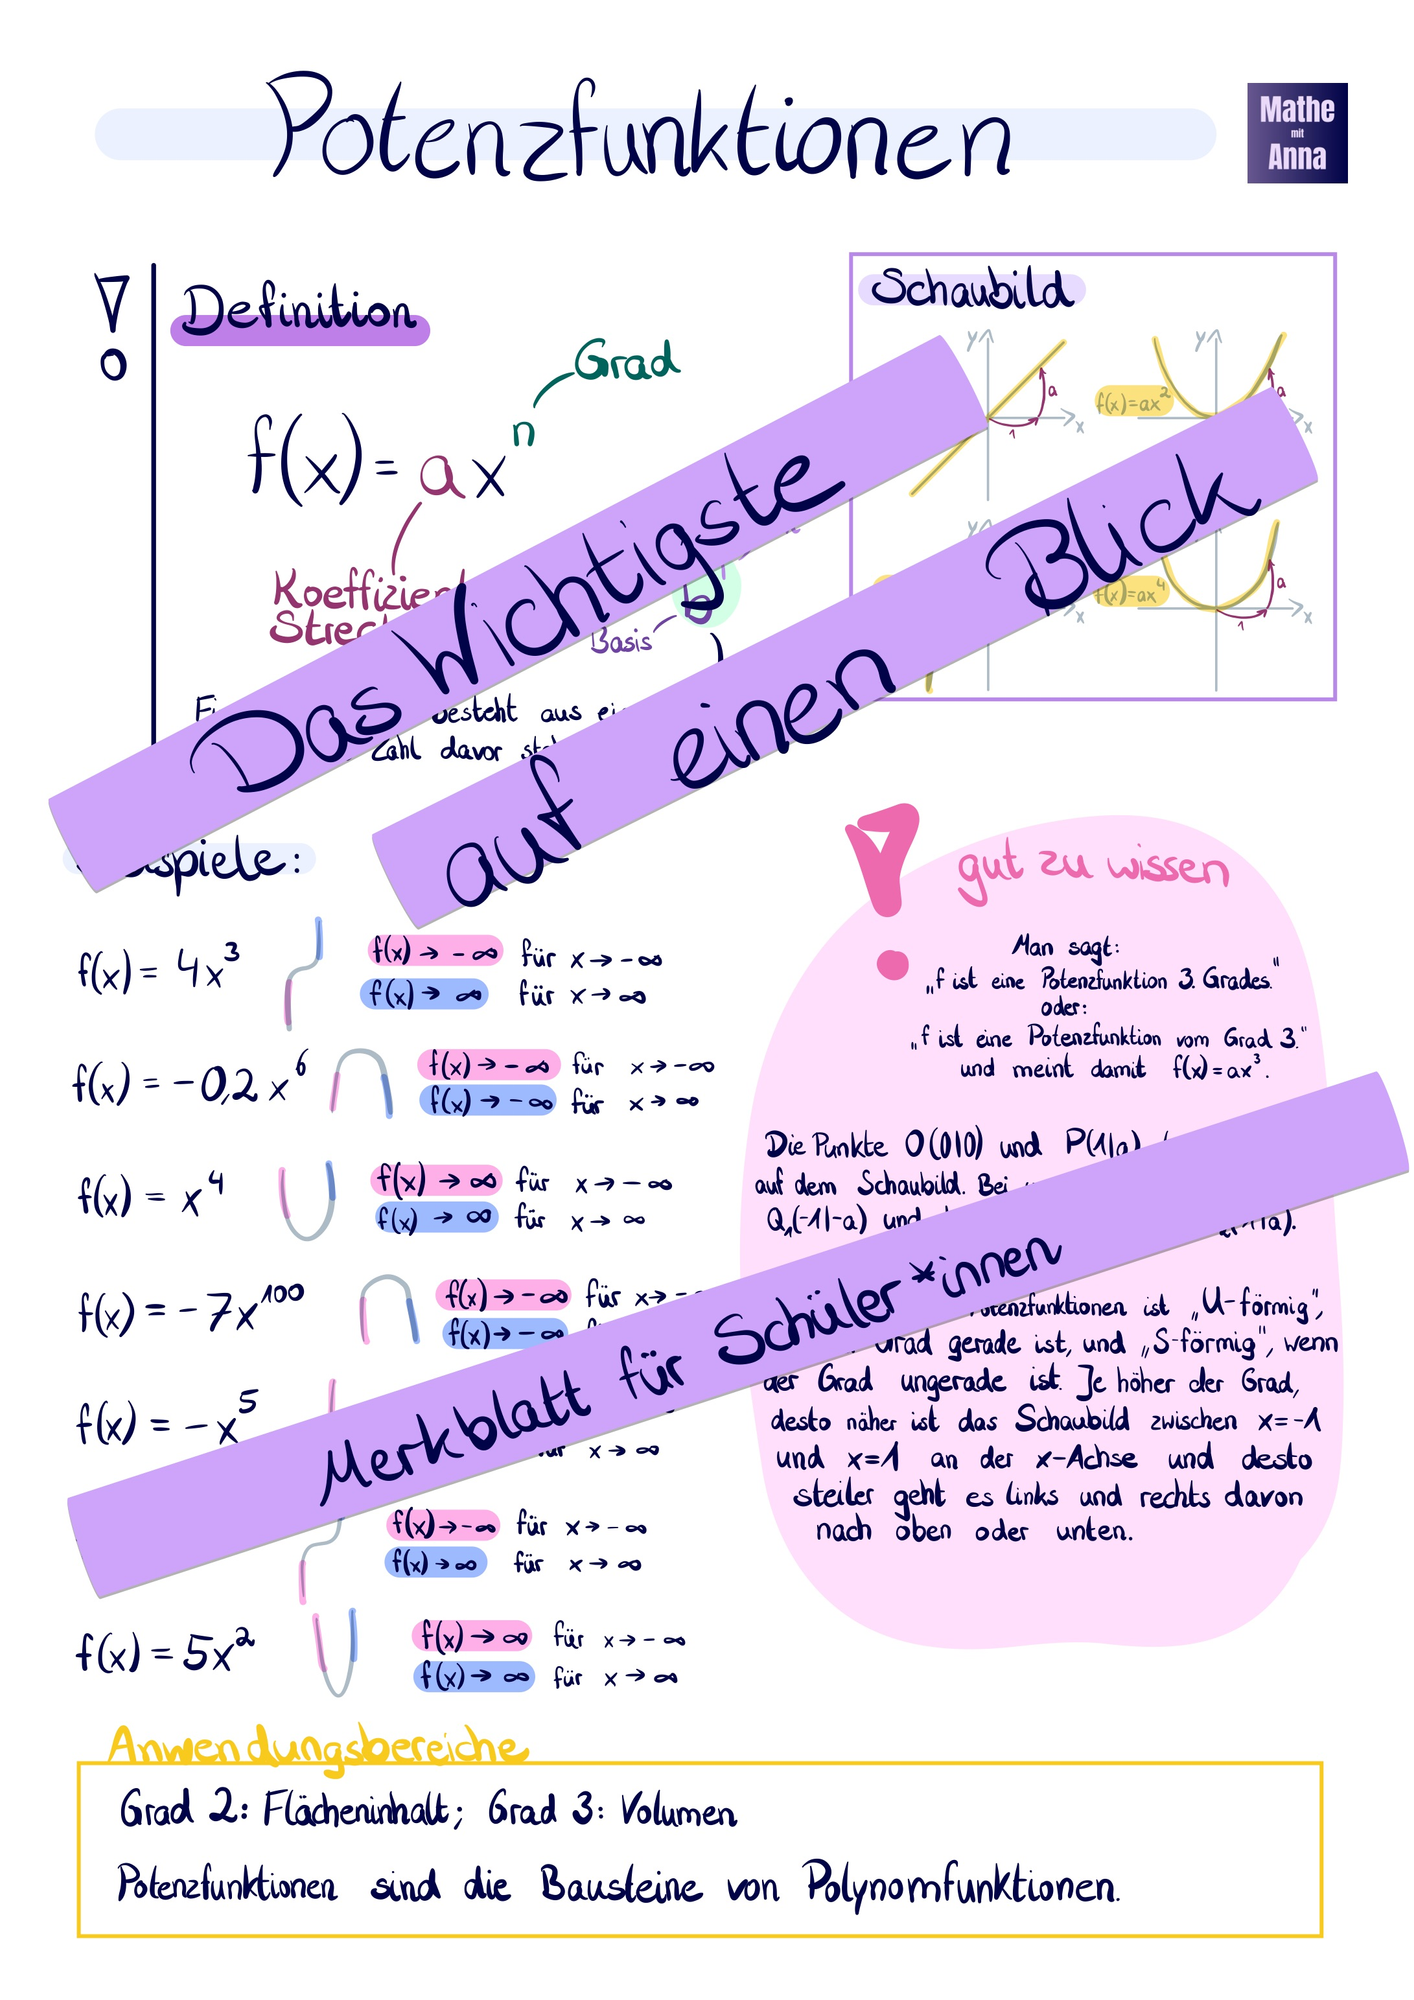 Potenzfunktionen
Mathe
mit
Anna
Definition
Grad
f(x) = a x^n
Basis
besteht aus
Zahl davor
Schaubild
y
a
1
x
y
f(x)=ax²
a
x
y
x
f(x)=ax⁴
a
1
x
Das Wichtigste
auf einen Blick
f(x) = 4x³
f(x) → -∞ für x → -∞
f(x) → ∞ für x → ∞
f(x) = -0,2x⁶
f(x) → -∞ für x → -∞
f(x) → -∞ für x → ∞
f(x) = x⁴
f(x) → ∞ für x → -∞
f(x) → ∞ für x → ∞
f(x) = -7x¹⁰⁰
f(x) → -∞ für x → -
f(x) → -∞
f(x) = -x⁵
für x → ∞
f(x) → -∞ für x → -∞
f(x) → ∞ für x → ∞
f(x) = 5x²
f(x) → ∞ für x → -∞
f(x) → ∞ für x → ∞
gut zu wissen
Man sagt:
„f ist eine Potenzfunktion 3. Grades."
oder:
„f ist eine Potenzfunktion vom Grad 3."
und meint damit f(x)=ax³.
Die Punkte O(0|0) und P(1|a)
auf dem Schaubild. Bei
Q₁(-1|-a) und
Potenzfunktionen ist „U-förmig",
Grad gerade ist, und „S-förmig", wenn
der Grad ungerade ist. Je höher der Grad,
desto näher ist das Schaubild zwischen x=-1
und x=1 an der x-Achse und desto
steiler geht es links und rechts davon
nach oben oder unten.
Merkblatt für Schüler*innen
Anwendungsbereiche
Grad 2: Flächeninhalt; Grad 3: Volumen
Potenzfunktionen sind die Bausteine von Polynomfunktionen.